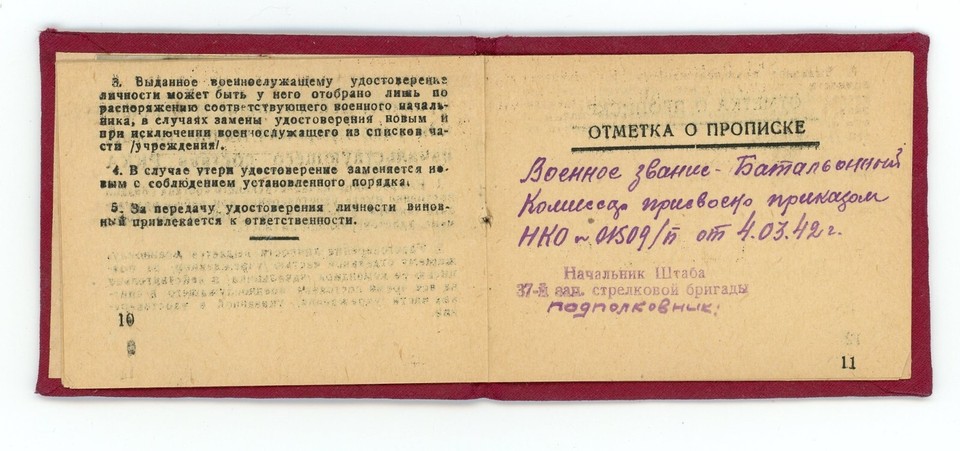 3. Выданное военнослужащему удостоверение
личности может быть у него отобрано лишь по
распоряжению соответствующего военного началь-
ника, в случаях замены удостоверения новым и
при исключении военнослужащего из списков ча-
сти /учреждения/.
4. В случае утери удостоверение заменяется но-
вым с соблюдением установленного порядка.
5. За передачу удостоверения личности винов-
ный привлекается к ответственности.
10
ОТМЕТКА О ПРОПИСКЕ
Военное звание - Батальонный
Комиссар присвоено приказом
НКО № 01509/п от 4.03.42 г.
Начальник Штаба
37-й зап. стрелковой бригады
подполковник:
11